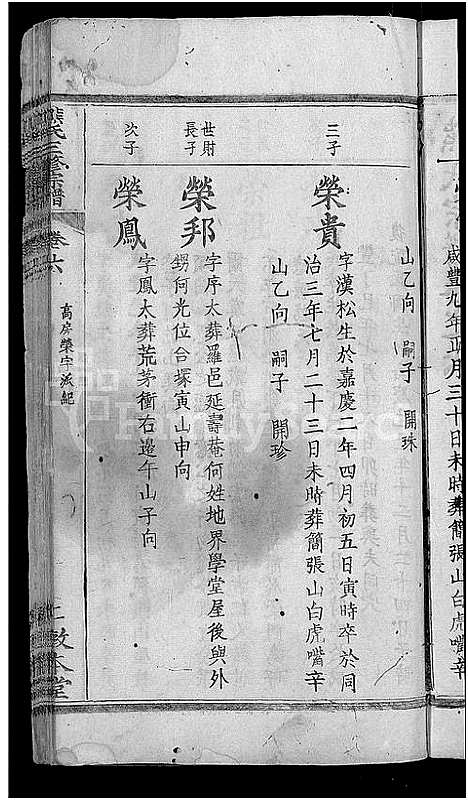 咸豐九年正月三十日未時葬簡張山白虎嘴辛
山乙向 嗣子 開珠
三子
榮貴
字漢松生於嘉慶二年四月初五日寅時卒於同
治三年七月二十三日未時葬簡張山白虎嘴辛
山乙向 嗣子 開珍
世財
長子
榮邦
字序太葬羅邑延壽菴何姓地界學堂屋後與外
甥何光位合塚寅山申向
次子
榮鳳
字鳳太葬荒茅衝右邉午山子向
熊氏三修宗譜
卷六
高房榮字派紀
敦本堂